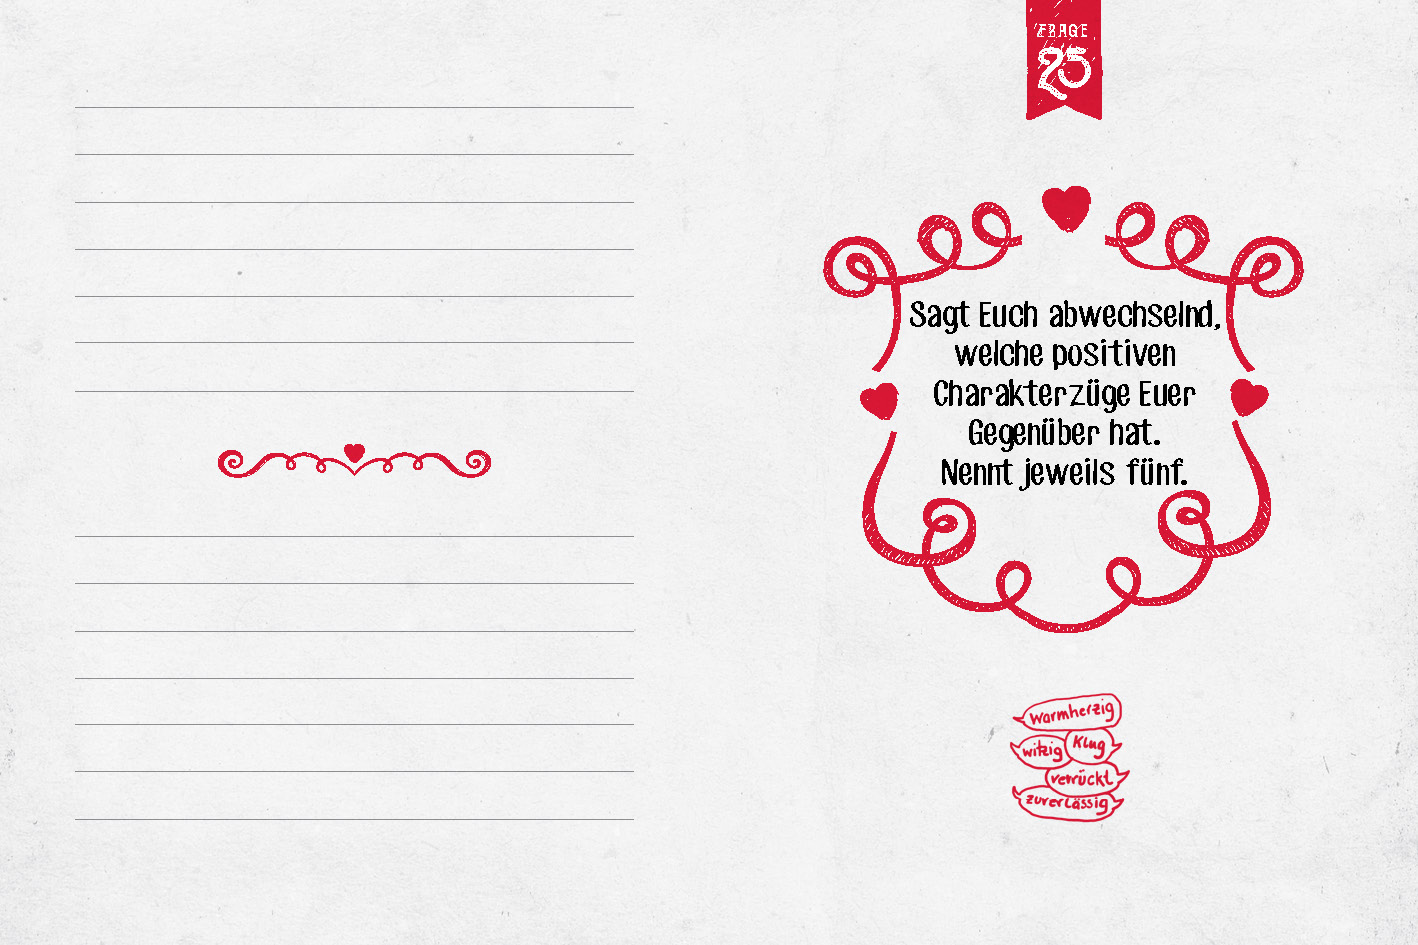 FRAGE
25
Sagt Euch abwechselnd,
welche positiven
Charakterzüge Euer
Gegenüber hat.
Nennt jeweils fünf.
warmherzig
witzig Klug
verrückt
zuverlässig